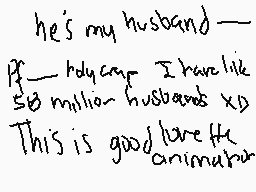 he's my husband —
Pf— holy crap I have lik
50 million husbands XD
This is good love the
animation